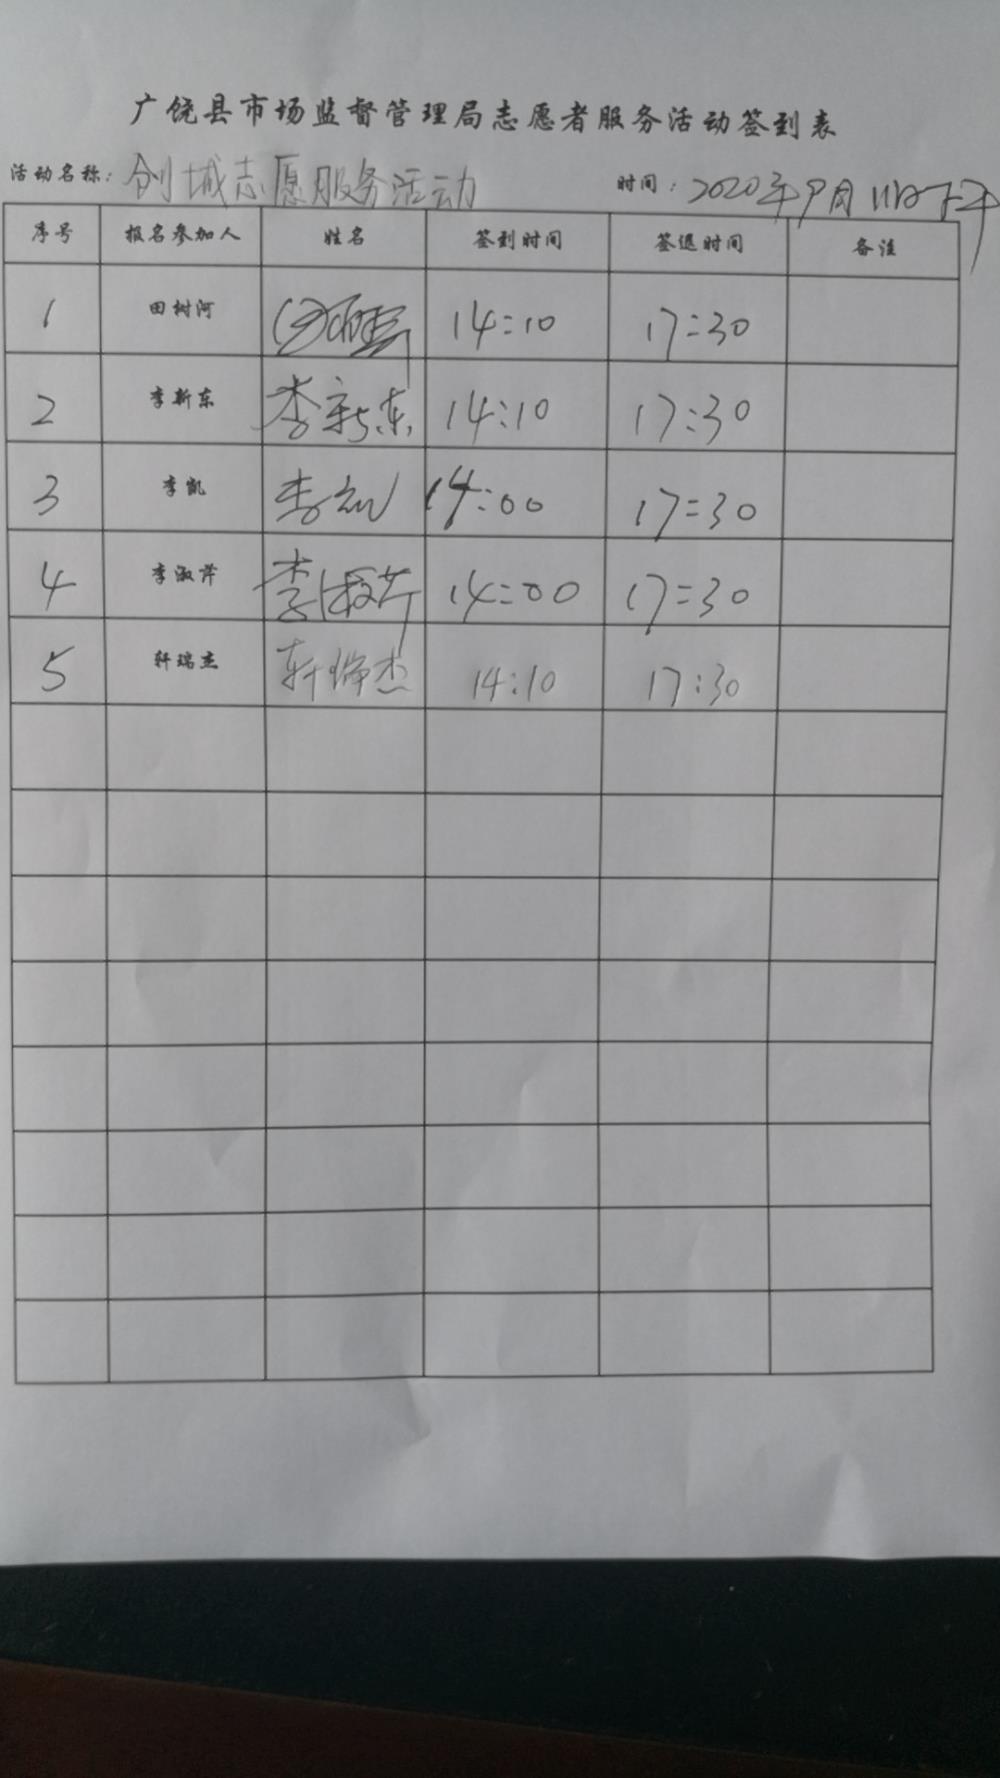 广饶县市场监督管理局志愿者服务活动签到表
活动名称：创城志愿服务活动 时间：2020年9月11日下午
序号 报名参加人 姓名 签到时间 签退时间 备注
1 田树河 14:10 17:30
2 李新东 李新东 14:10 17:30
3 李凯 李凯 14:00 17:30
4 李淑芹 李淑芹 14:00 17:30
5 轩瑞杰 轩瑞杰 14:10 17:30